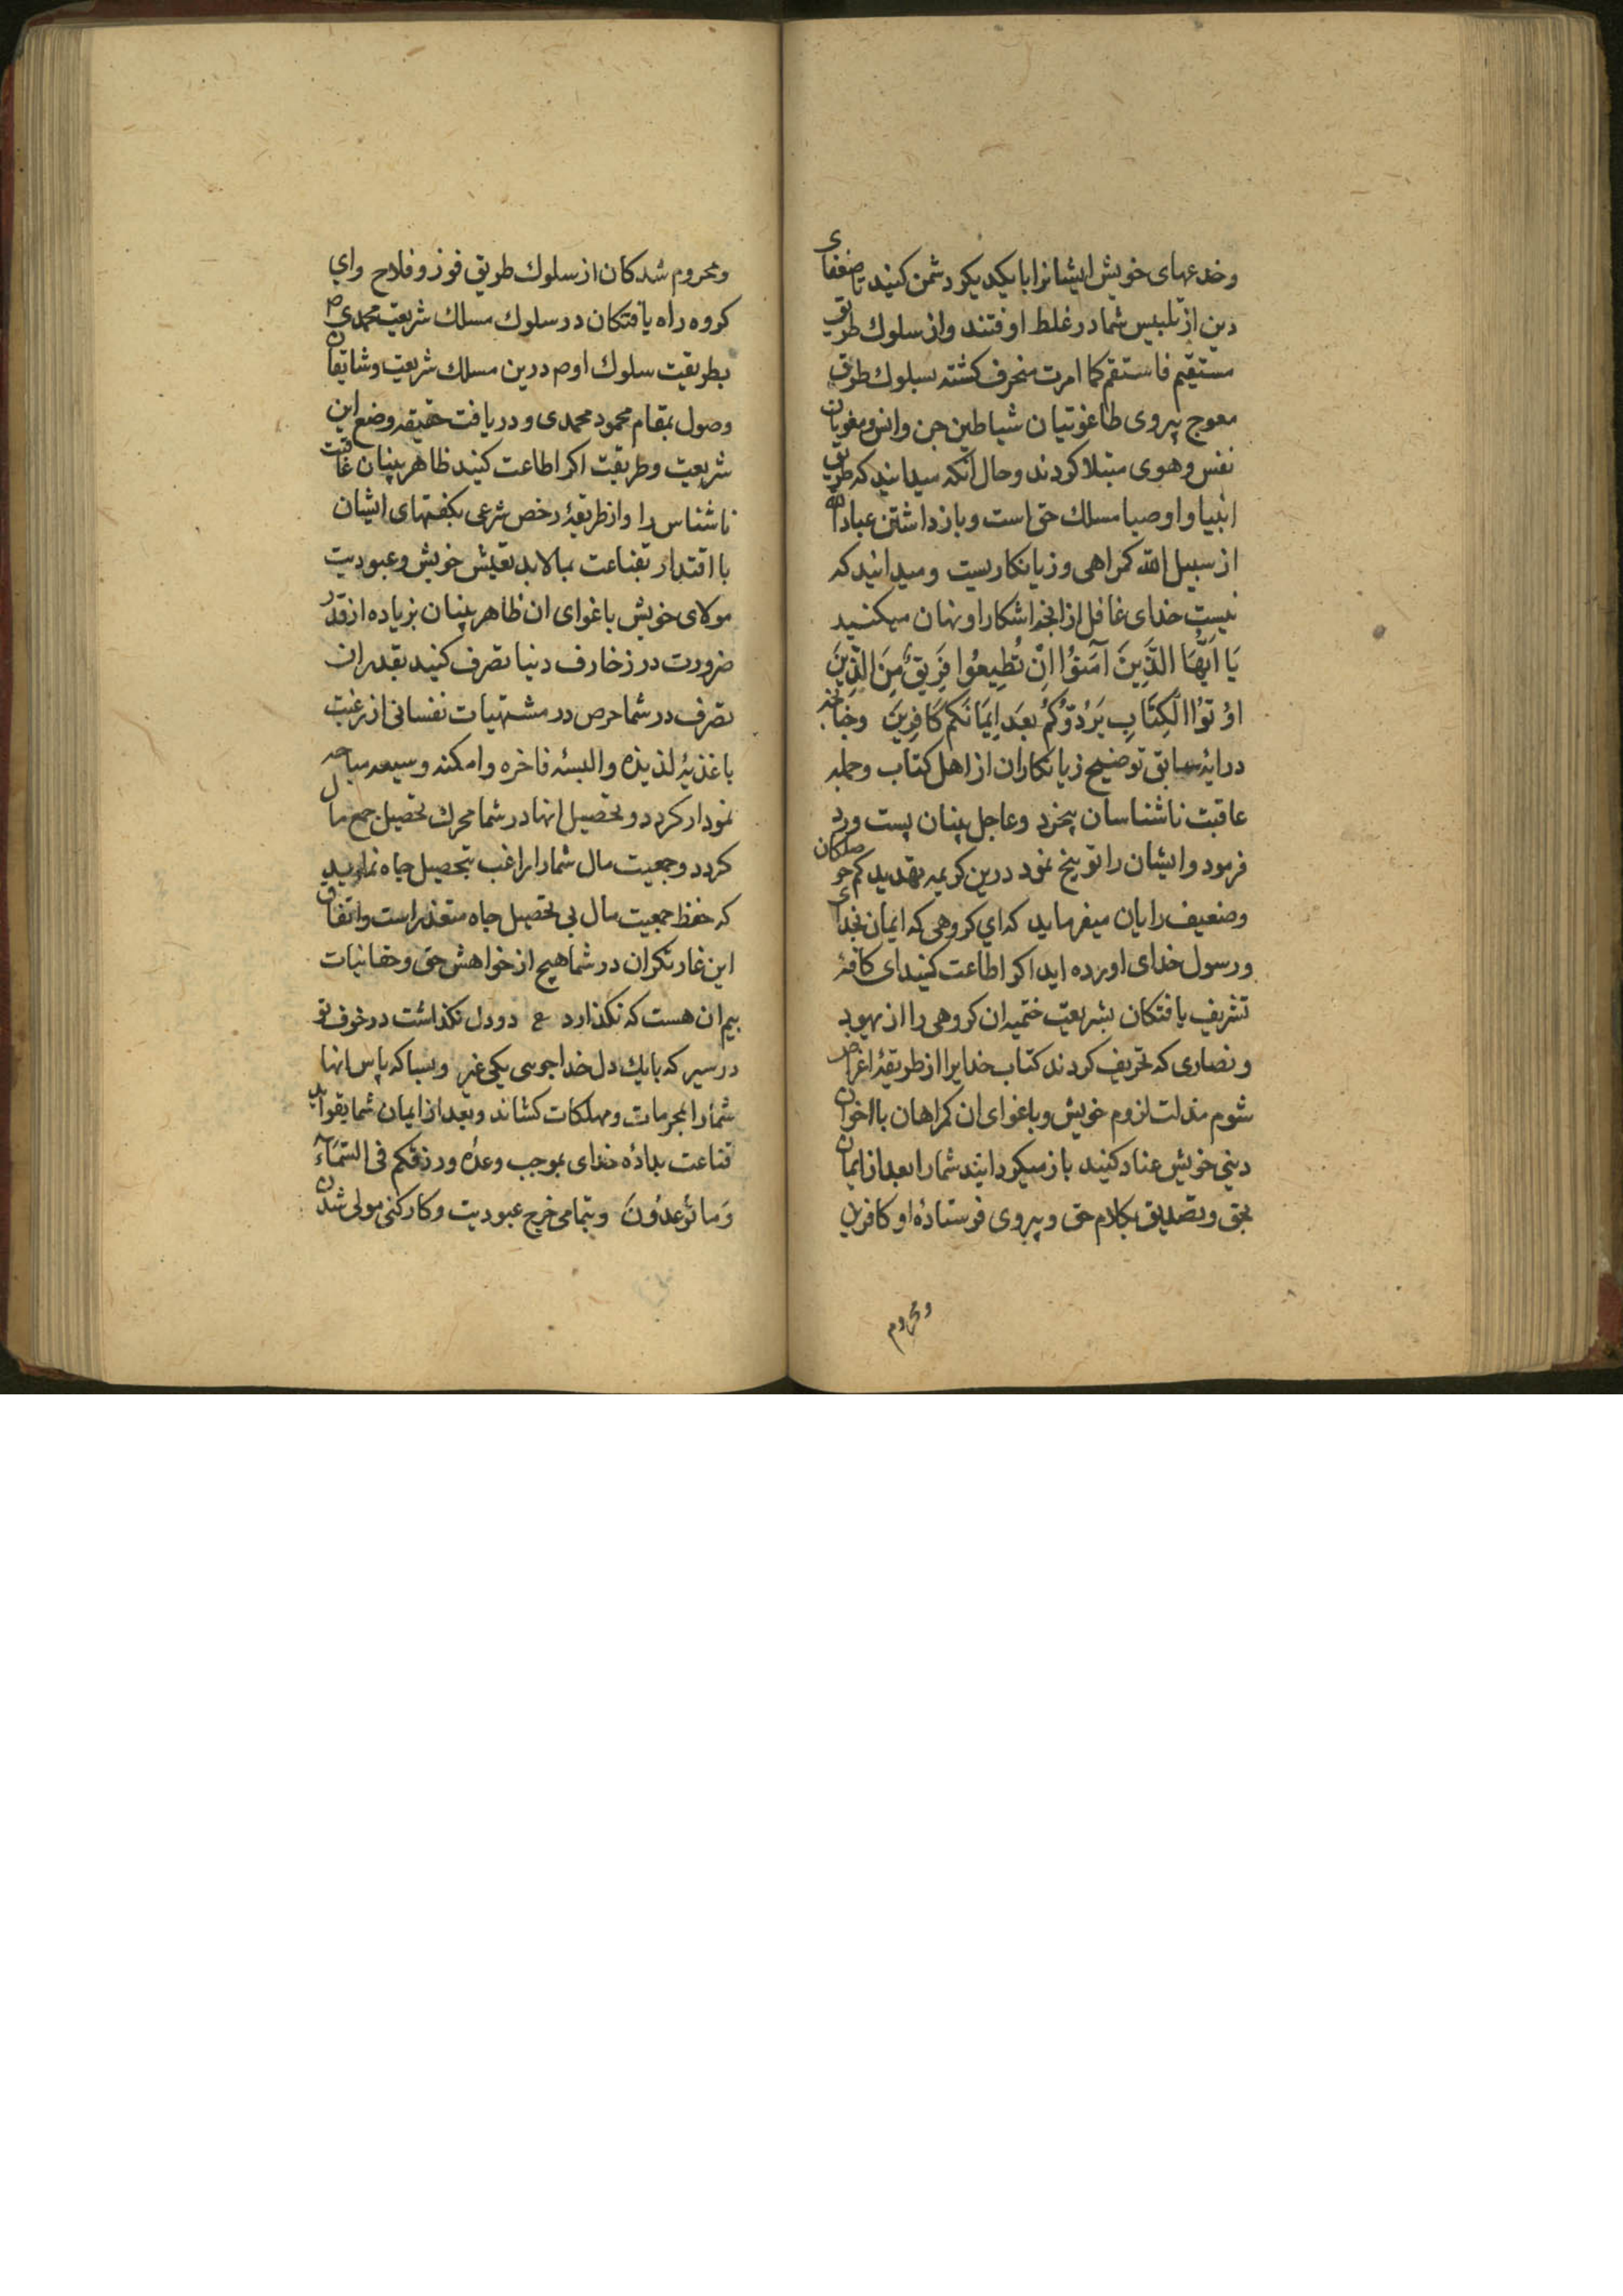 وخدعهای خویش ایشانرا بایکدیکر دشمن کنید تا ضعفای
دین از تلبیس شما در غلط اوفتند واز سلوك طریق
مستقیم فاستقم کما امرت منحرف کشته بسلوك طریق
معوج پیروی طاغوتیان شیاطین جن وانس ومغویان
نفس وهوی مبتلا کردند وحال انکه میدانید که طریق
انبیا واوصیا مسلك حق است وباز داشتن عباد الله
از سبیل الله کمراهی وزیانکاریست ومیدانید که
نیست خدای غافل از انچه اشکارا ونهان میکنید
يَا اَيُّهَا الَّذِينَ آمَنُوْا اِنْ تُطِيعُوا فَرِيقً مِنَ الَّذِينَ
اوُتوُا الكِتَابِ يَرُدّوُكُمْ بَعدَ اِيمَانَكم كَافِرِينَ وچنانچه
درایهٔ سابق توضیح زیانکاران از اهل کتاب وجمله
عاقبت ناشناسان بیخرد وعاجل بینان پست ورد
فرمود وایشان را توبیخ نمود درین کریمه تهدید کم حوصلکان
وضعیف رایان میفرماید که ای کروهی که ایمان بخدای
ورسول خدای اورده اید اکر اطاعت کنید ای کافهٔ
تشریف یافتکان بشریعت ختمیه ان کروهی را از یهود
ونصاری که تحریف کردند کتاب خدایرا از طریقهٔ اغراض
شوم مذلت لزوم خویش وباغوای ان کمراهان با اخوان
دینی خویش عناد کنید باز میکردانند شما را بعد از ایمان
بحق وتصدیق بکلام حق وپیروی فرستادهٔ او کافرین
ومحروم
ومحروم شدکان از سلوك طریق فوز وفلاح وای
کروه راه یافتکان در سلوك مسلك شریعت محمدی ص
بطریقت سلوك اوم درین مسلك شریعت وشایقان
وصول بمقام محمود محمدی ودریافت حقیقه وضع این
شریعت وطریقت اکر اطاعت کنید ظاهر بینان عاقبت
ناشناس را واز طریقهٔ رخص شرعی بکفتهای ایشان
با اقتدار بقناعت بمالابد تعیش خویش وعبودیت
مولای خویش باغوای ان ظاهر بینان بزیاده از قدر
ضرورت در زخارف دنیا تصرف کنید بقدر ان
تصرف در شما حرص در مشتهیات نفسانی از رغبت
باغذیهٔ لذیذه والبسهٔ فاخره وامکنه وسیعه مباحه
نمودار کردد وتحصیل انها در شما محرك تحصیل جمع مال
کردد وجمعیت مال شما را راغب بتحصیل جاه نماید
که حفظ جمعیت مال بی تحصیل جاه متعذر است واتفاق
این غارتکران در شما هیچ از خواهش حق وحقانیات
بیم ان هست که نکذارد ع دو دل نکذاشت در خوف تو
در سیر که بایك دل خدا جویی یکی غیر وبسا که پاس انها
شما را بمحرمات ومهلکات کشاند وبعد از ایمان شما بقواید
قناعت بدادهٔ خدای بموجب وعدهٔ ورزقکم فی السَّمَاءِ
وَمَا تُوعَدُونَ وبتمامی خرج عبودیت وکارکنی مولی شدن